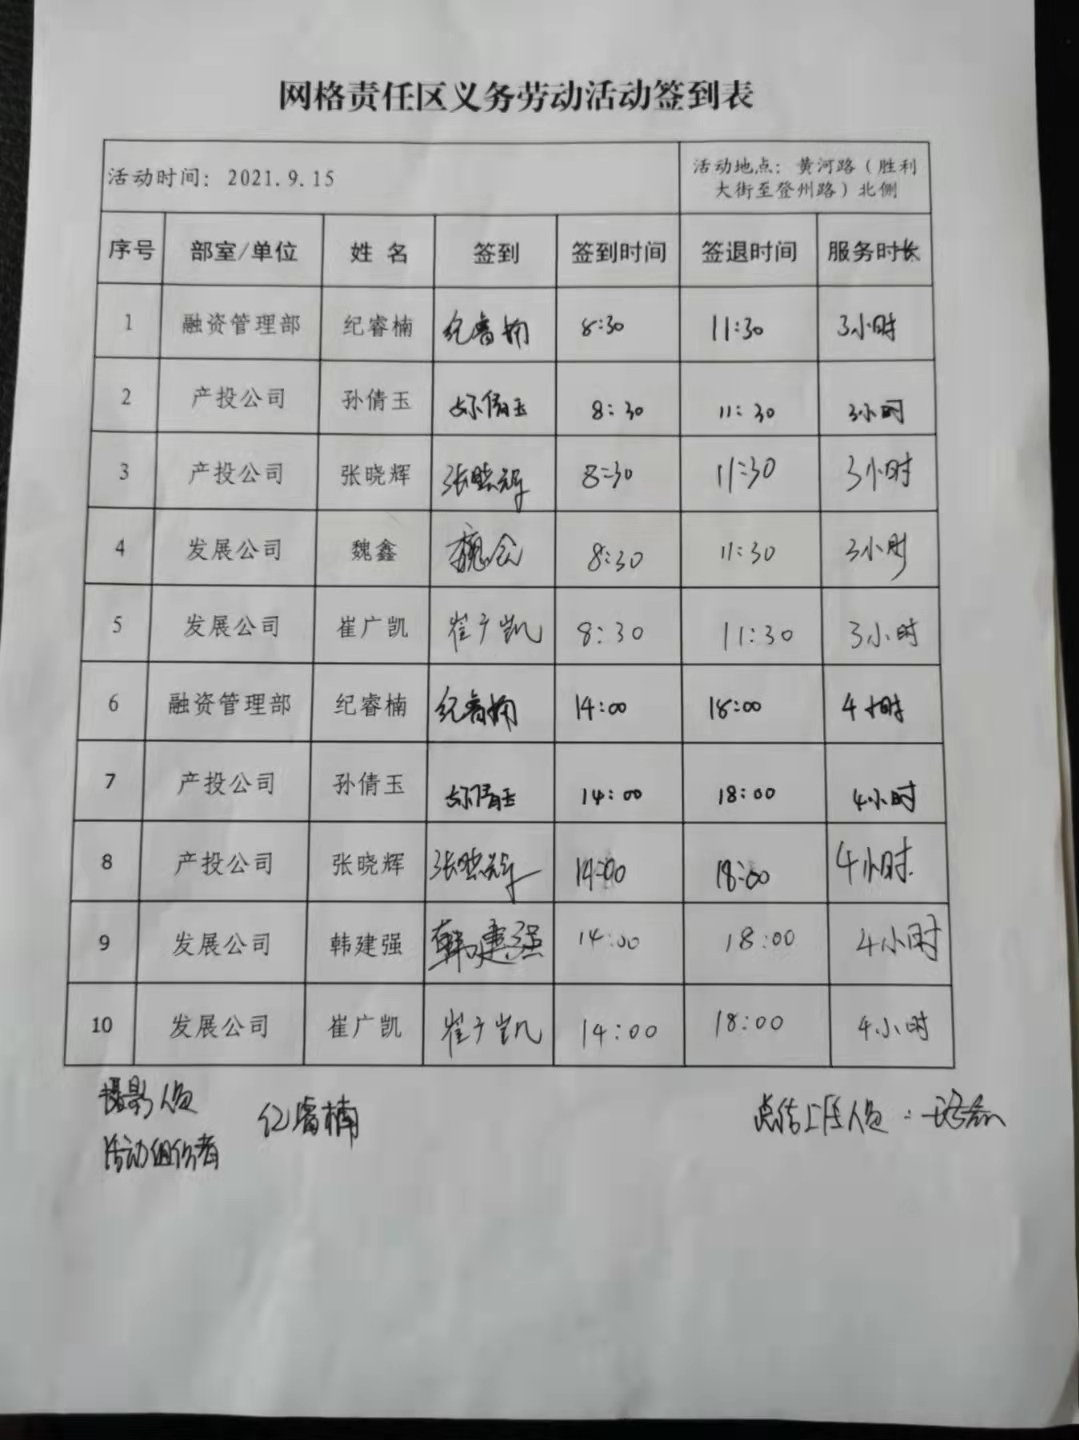 网格责任区义务劳动活动签到表
活动时间：2021.9.15 活动地点：黄河路（胜利
大街至登州路）北侧
序号 部室/单位 姓 名 签到 签到时间 签退时间 服务时长
1 融资管理部 纪睿楠 纪睿楠 8:30 11:30 3小时
2 产投公司 孙倩玉 孙倩玉 8:30 11:30 3小时
3 产投公司 张晓辉 张晓辉 8:30 11:30 3小时
4 发展公司 魏鑫 魏鑫 8:30 11:30 3小时
5 发展公司 崔广凯 崔广凯 8:30 11:30 3小时
6 融资管理部 纪睿楠 纪睿楠 14:00 18:00 4小时
7 产投公司 孙倩玉 孙倩玉 14:00 18:00 4小时
8 产投公司 张晓辉 张晓辉 14:00 18:00 4小时
9 发展公司 韩建强 韩建强 14:00 18:00 4小时
10 发展公司 崔广凯 崔广凯 14:00 18:00 4小时
摄影人员 纪睿楠 人员：
活动组织者